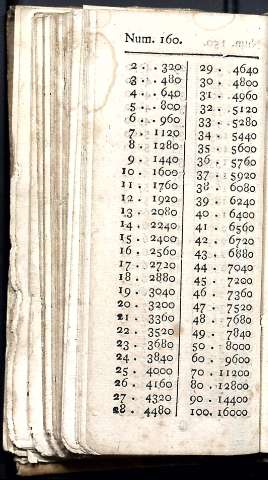 Num. 160.
2 . . 320
3 . . 480
4 . . 640
5 . . 800
6 . . 960
7 . 1120
8 . 1280
9 . 1440
10 . 1600
11 . 1760
12 . 1920
13 . 2080
14 . 2240
15 . 2400
16 . 2560
17 . 2720
18 . 2880
19 . 3040
20 . 3200
21 . 3360
22 . 3520
23 . 3680
24 . 3840
25 . 4000
26 . 4160
27 . 4320
28 . 4480
29 . 4640
30 . 4800
31 . 4960
32 . 5120
33 . 5280
34 . 5440
35 . 5600
36 . 5760
37 . 5920
38 . 6080
39 . 6240
40 . 6400
41 . 6560
42 . 6720
43 . 6880
44 . 7040
45 . 7200
46 . 7360
47 . 7520
48 . 7680
49 . 7840
50 . 8000
60 . 9600
70 . 11200
80 . 12800
90 . 14400
100. 16000